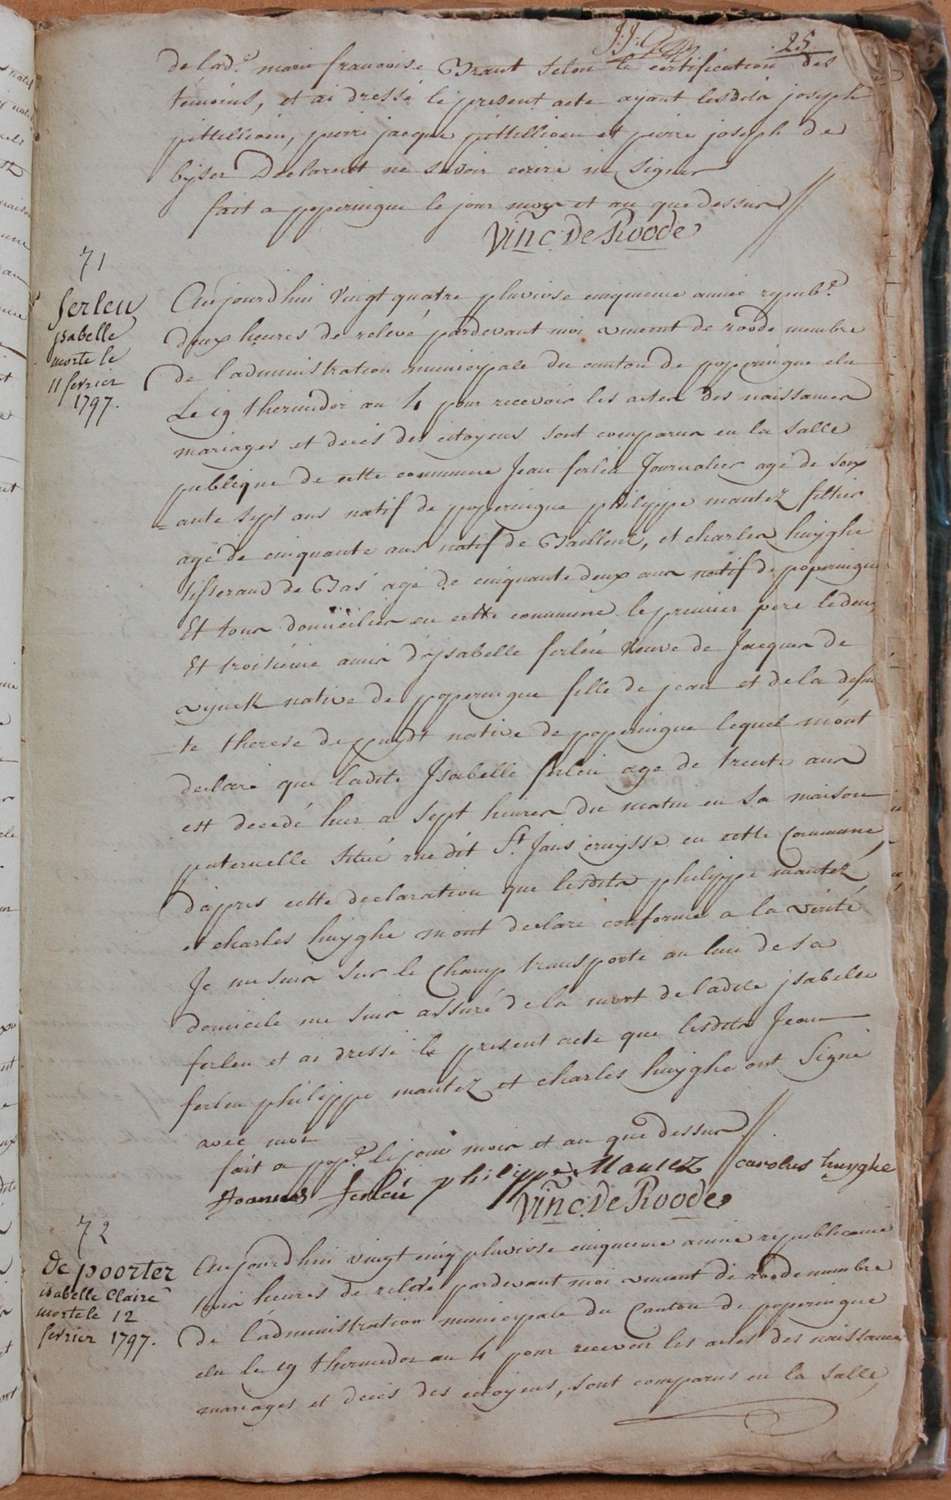 25
de lad.e marie francoise Braut selon la certification des
temoins, et ai dressé le present acte ayant lesdits joseph
pittellioen, pierre jacque pittellioen et pierre joseph de
byser Declarent ne savoir ecrire ni signer
fait a poperingue le jour mois et an que dessus
Vinc. De Roode
71
ferleu
isabelle
morte le
11 fevrier
1797.
Aujourdhui vingt quatre pluviose cinquieme année repub.e
deux heures de relevé pardevant moi vincent de roode membre
de l'administration municipale du canton de poperingue elu
Le 19 thermidor an 4 pour recevoir les actes des naissances
mariages et decés des citoyens sont comparus en la salle
publique de cette commune Jean ferleu Journalier agé de soix
=ante sept ans natif de poperingue philippe mantez fithier
agé de cinquante ans natif de Bailleul, et charles huyghe
tisserand de Bas agé de cinquante deux ans natif de poperingue
Et tous domicilies en cette commune le premier pere le deux
Et troisieme amis d'ysabelle ferleu veuve de Jacques de
vynck native de poperingue fille de jean et de la defun
te therese depuydt native de poperingue lequel m'ont
declaré que ladite Isabelle ferleu agé de trente ans
est decedé hier a sept heures du matin en sa maison
paternelle situé rue dit St. Jans cruysse en cette Commune
d'apres cette declaration que lesdits philippe mantez
et charles huyghe m'ont declaré conforme a la verité
Je me suis sur le champ transporté au lieu de sa
domicile me suis assuré de la mort de ladite jsabelle
ferleu et ai dressé le present acte que lesdits Jean
ferleu philippe mantez et charles huyghe ont Signé
avec moi
fait a pop.e le jour mois et an que dessus
Joannes ferleu philippe Mantez carolus huyghe
Vinc. De Roode
72
de poorter
isabelle claire
morte le 12
fevrier 1797.
Aujourdhui vingt cinq pluviose cinquieme année republicaine
trois heures de relevé pardevant moi vincent de roode membre
de l'administration municipale du Canton de poperingue
elu le 19 thermidor an 4 pour recevoir les actes des naissances
mariages et decés des citoyens, sont comparus en la salle